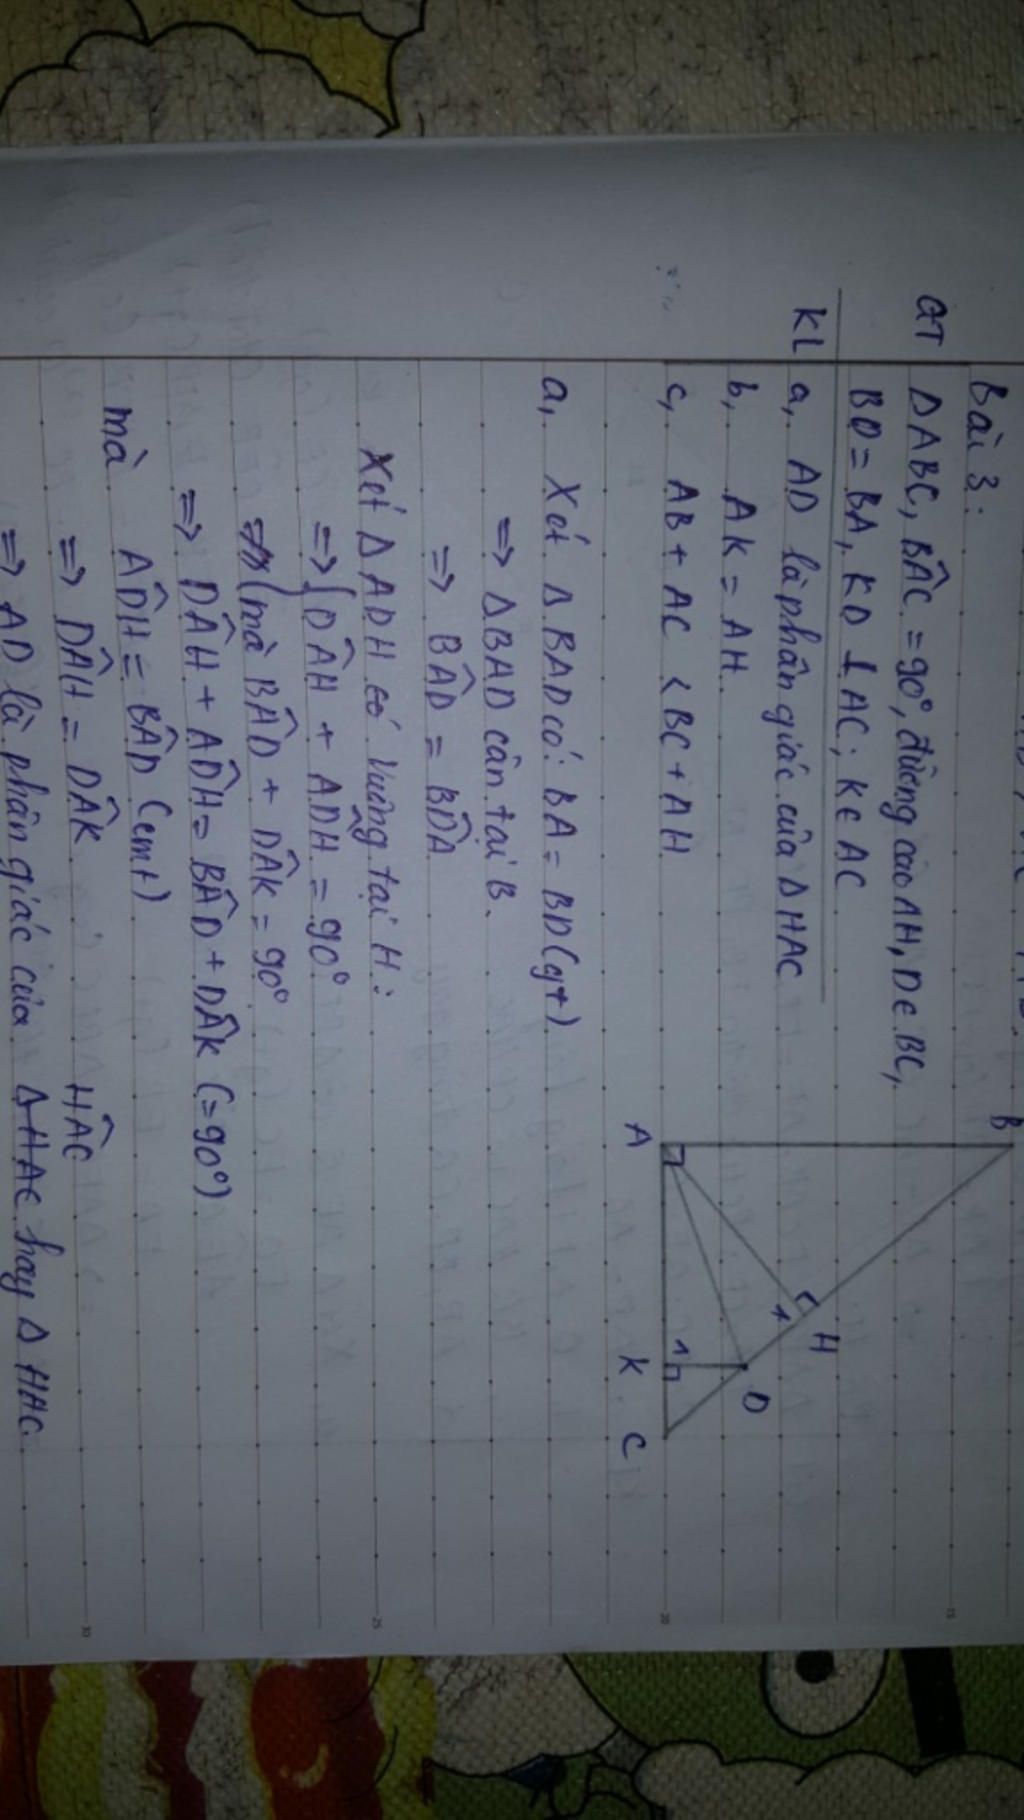 Bài 3:
GT ΔABC, BÂC = 90°, đường cao AH, D∈BC,
BD = BA, KD ⊥ AC; K∈AC
KL a, AD là phân giác của ΔHAC
b, AK = AH.
c, AB + AC < BC + AH
B
A
H
1
D
1
K
C
a, Xét ΔBAD có: BA = BD (gt)
=> ΔBAD cân tại B.
=> BÂD = BD̂A
Xét ΔADH có vuông tại H:
=> { DÂH + AD̂H = 90°
(mà BÂD + DÂK = 90°
=> DÂH + AD̂H = BÂD + DÂK (=90°)
mà AD̂H = BÂD (cmt)
=> DÂH = DÂK
HÂC
=> AD là phân giác của ΔHAC hay ΔHAC.
15
20
25
30